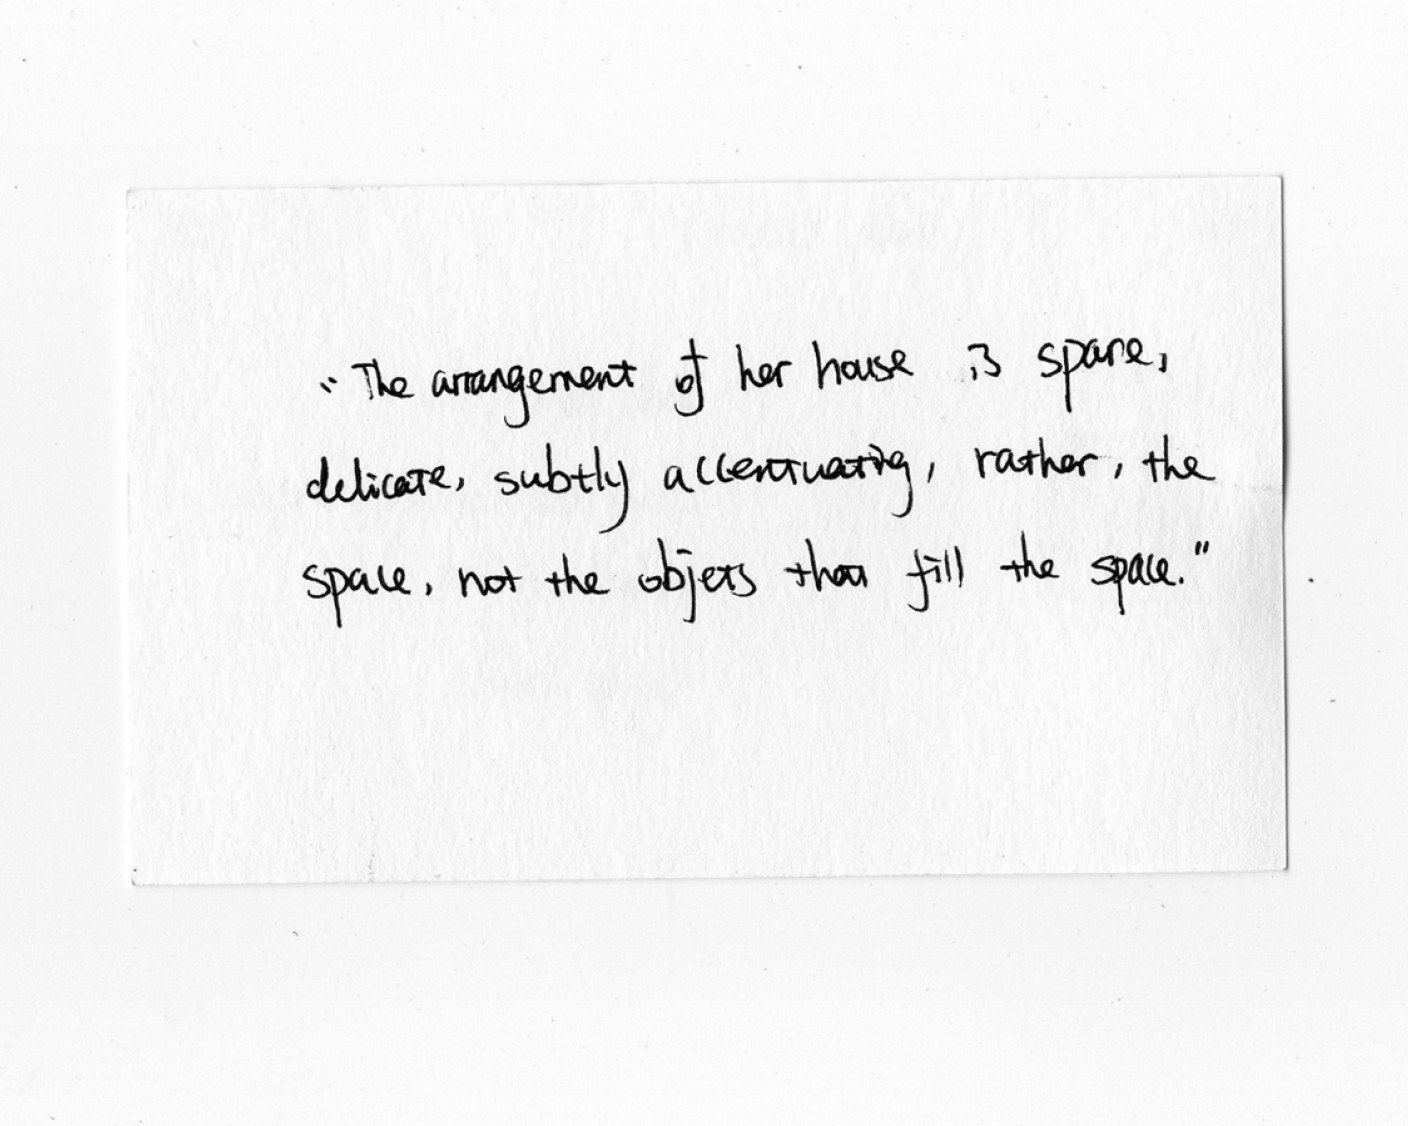 "The arrangement of her house is spare,
delicate, subtly accentuating, rather, the
space, not the objets that fill the space."